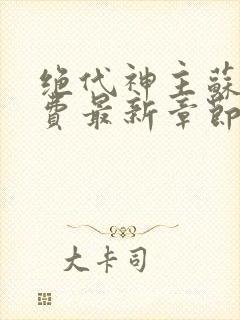 绝代神主蘇
費最新章節
大卡司